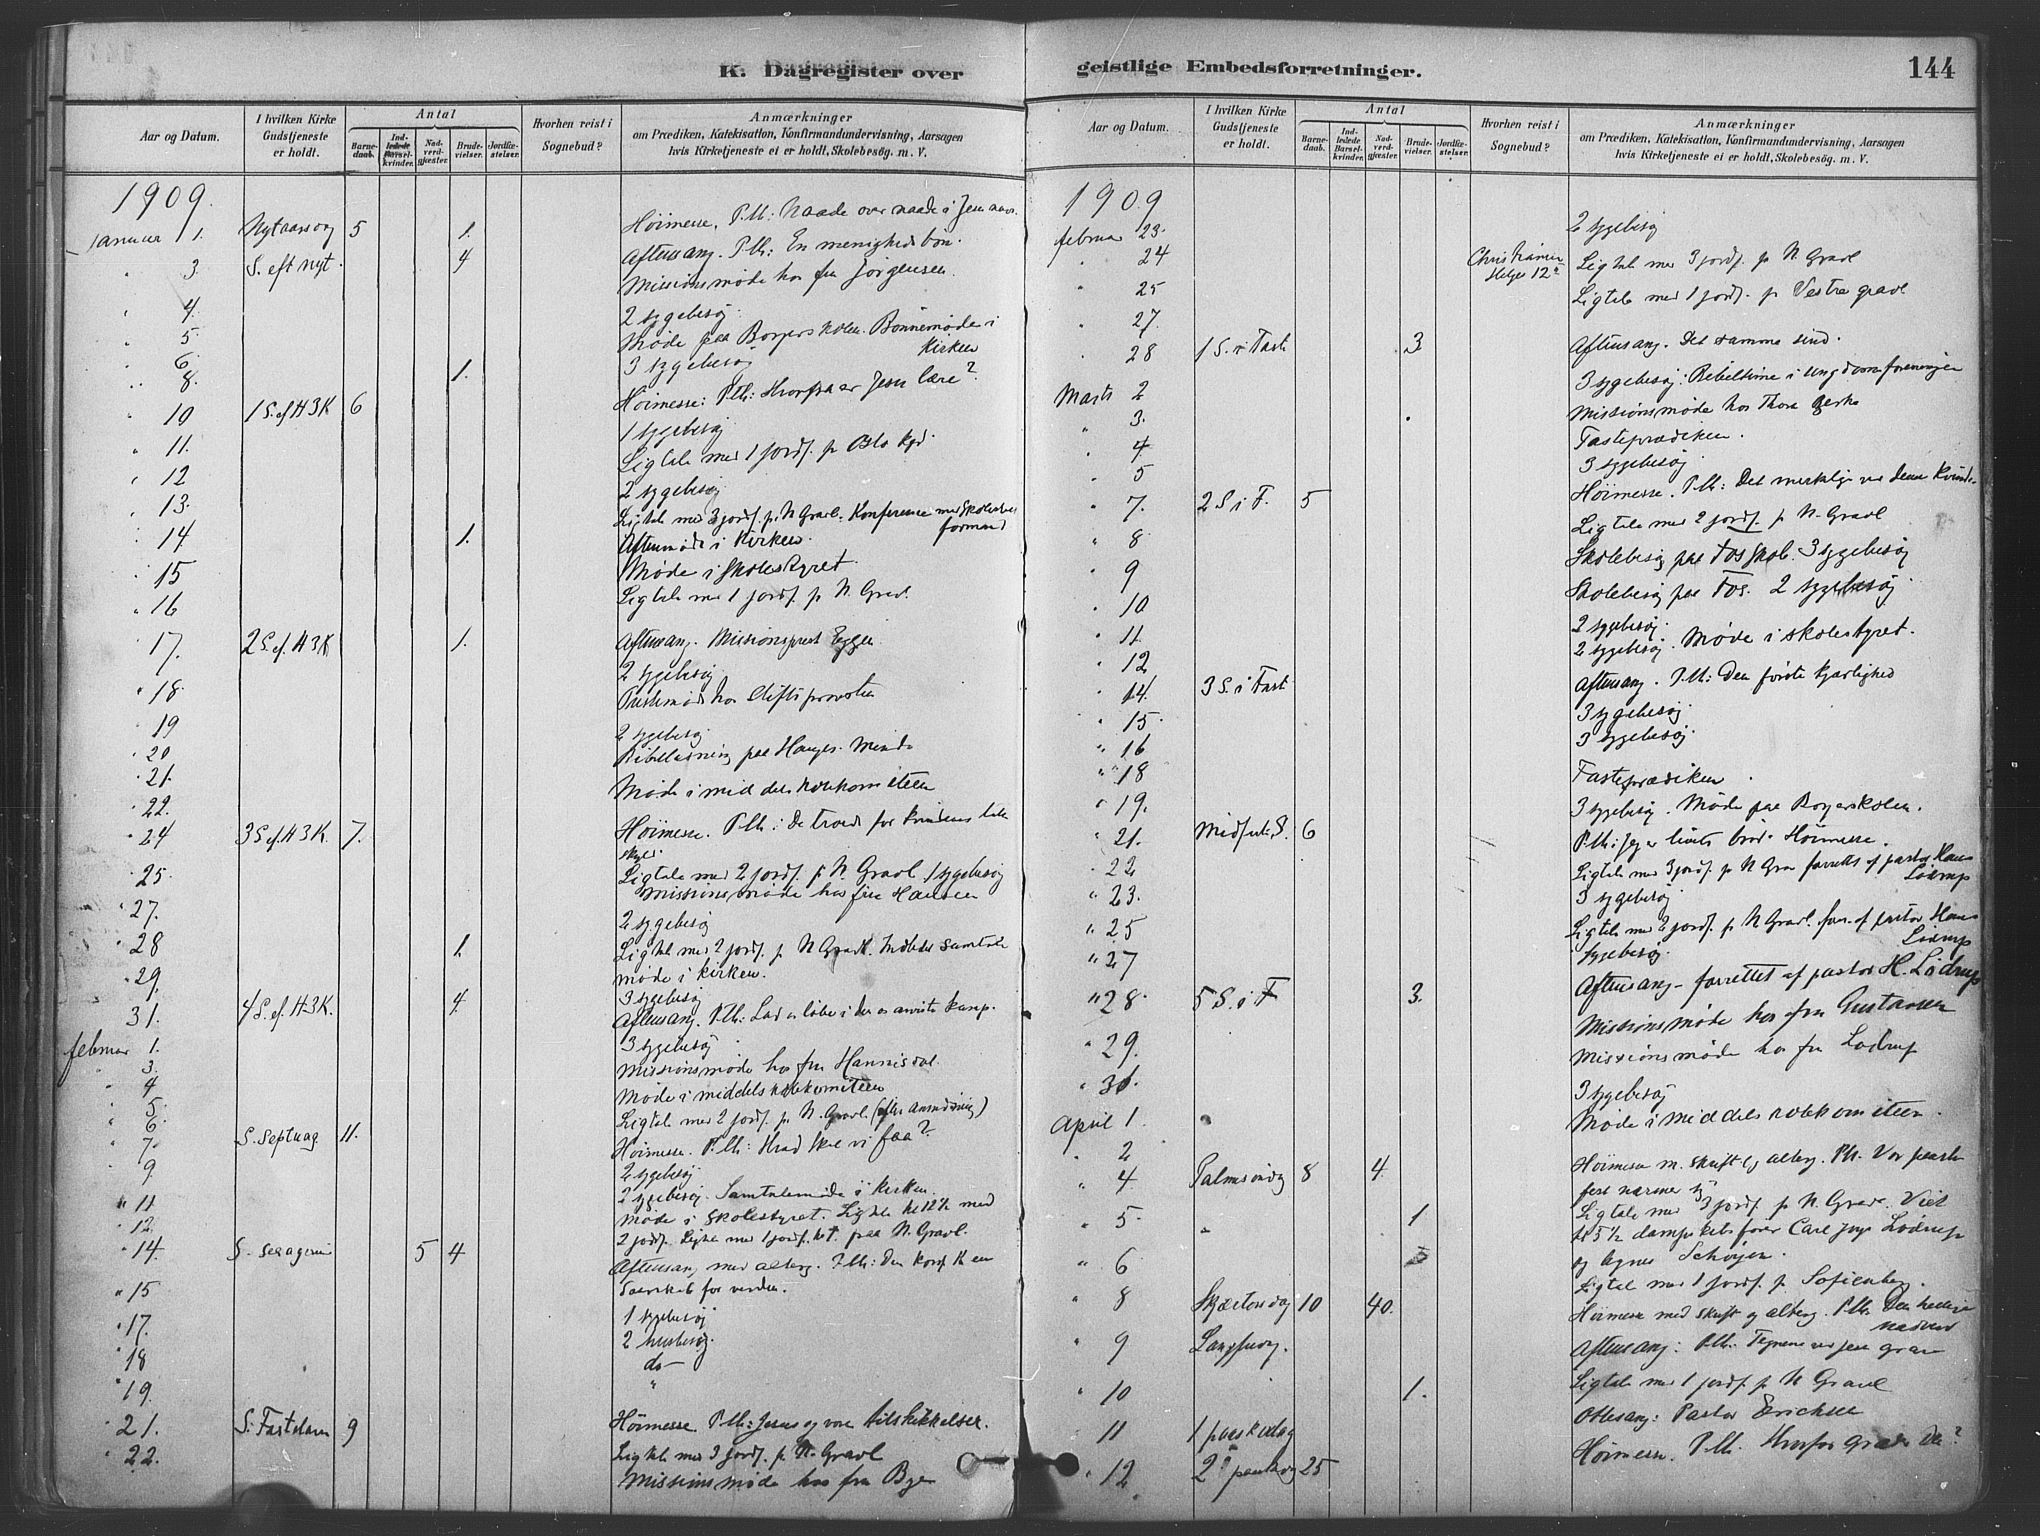 K. Dagregister over
geistlige Embedsforretninger.
144
Aar og Datum.
I hvilken Kirke Gudstjeneste er holdt.
Antal
Barne-daab.
Ind-ledede Barsel-kvinder.
Nad-verd-gjester.
Brude-vielser.
Jordfæ-stelser.
Hvorhen reist i Sognebud?
Anmærkninger
om Prædiken, Katekisation, Konfirmandundervisning, Aarsagen
hvis Kirketjeneste ei er holdt, Skolebesøg. m. V.
1909.
Januar 1. Nytaarsdag 5 1. Høimesse. P. th: Naade over naade i Jesu navn.
" 3. S. eft nyt. 4 Aftensang. P. th: En menigheds bøn.
Missionsmøde hos fru Jørgensen.
" 4. 2 sygebesøg.
" 5. Møde paa Borgerskolen. Bønnemøde i Kirken
" 6. 3 sygebesøg
" 8. 1.
" 10 1 S. ef H3K 6 Høimesse: P. th: Hvorfra er Jesu lære?
" 11. 1 sygebesøg
" 12 Ligtale med 1 jordf. p Oslo kgd.
" 13. 2 sygebesøg
" 14 1. Ligtale med 3 jordf. p. N Gravl. Konference med skolestyrets formand
Aftenmøde i Kirken.
" 15 Møde i skolestyret.
" 16 Ligtale med 1 jordf. p N. Gravl.
" 17. 2 S. ef. H3K 1. Aftensang. Missionsprest Eggen.
" 18. 2 sygebesøg
Prestemøde hos Stiftsprovsten
" 19 2 sygebesøg.
" 20 Bibellæsning paa Hauges Minde
" 21.
" 22. Møde i middelskolekomiteen
" 24 3 S. ef. H3K. 7. Høimesse. P. th: De troede for kvindens tale skyld.
" 25. Ligtale med 2 jordf. p N. Gravl. 1 sygebesøg
Missionsmøde hos fru Hansen
" 27. 2 sygebesøg
" 28 1. Ligtale med 2 jordf. p N Gravl. Indledet samtale
" 29. møde i kirken.
3 sygebesøg
" 31. 4 S. ef. H3K. 4. Aftensang. P. th: Lad os løbe i den os anviste kamp.
februar 1. 3 sygebesøg
" 3. Missionsmøde hos fru Hannisdal
" 4 Møde i middelskolekomiteen
" 5.
" 6. Ligtale med 2 jordf. p N. Gravl. (efter anmodning)
" 7. S. Septuag 11. Høimesse. P. th: Hvad skal vi faa?
" 9 2 sygebesøg
" 11 2 sygebesøg. Samtalemøde i kirken.
" 12. Møde i skolestyret. Ligtale kl 12½ med
2 jordf. Ligtale med 1 jordf. kl paa N. Gravl.
" 14. S. sexagesima 5 4 Aftensang med altergang. P. th: Den korsf. K en
daarskab for verden.
" 15 1 sygebesøg
" 17. 2 husbesøg.
" 18 do
" 19. "
" 21. S. Fastelavn 9 Høimesse. P. th: Jesus og vore tilskikkelser.
" 22. Ligtale med 3 jordf. p N. Gravl
Missionsmøde hos fru Bye
Aar og Datum.
I hvilken Kirke Gudstjeneste er holdt.
Antal
Barne-daab.
Ind-ledede Barsel-kvinder.
Nad-verd-gjester.
Brude-vielser.
Jordfæ-stelser.
Hvorhen reist i Sognebud?
Anmærkninger
om Prædiken, Katekisation, Konfirmandundervisning, Aarsagen
hvis Kirketjeneste ei er holdt, Skolebesøg. m. V.
1909
februar 23. 2 sygebesøg
" 24 Christiania Helges 12 Ligtale med 3 jordf. p N. Gravl
" 25 Ligtale med 1 jordf. p Vestre gravl
" 27.
" 28 1 S. i Fast. 3 Aftensang. Det samme sind.
Marts 2 3 sygebesøg. Bibeltime i ungdomsforeningen
" 3. Missionsmøde hos Thora
" 4 Fasteprædiken.
" 5 3 sygebesøg
" 7. 2 S i F. 5 Høimesse. P. th: Det merkelige ved denne kvinde.
" 8 Ligtale med 2 jordf. p N. Gravl
" 9 Skolebesøg paa Fos skole. 3 sygebesøg
" 10 Skolebesøg paa Fos. 2 sygebesøg
" 11. 2 sygebesøg.
" 12 2 sygebesøg. Møde i skolestyret.
" 14. 3 S. i Fast Aftensang. P. th: Den første kjærlighed
" 15. 3 sygebesøg.
" 16 3 sygebesøg.
" 18 Fasteprædiken
" 19. 3 sygebesøg. Møde paa Borgerskolen.
" 21. Midfaste S. 6 P. th: Jeg er livets brød. Høimesse.
" 22 Ligtale med 3 jordf. p N Grav forrettet af pastor Hans Lødrup
" 23. 3 sygebesøg
" 25 Ligtale med 2 jordf. p N Gravl. forr. af pastor Hans Lødrup
" 27 sygebesøg.
" 28. 5 S. i F 3. Aftensang - forrettet af pastor H. Lødrup
" 29. Missionsmøde hos fru Gustavsen
Missionsmøde hos fru Lødrup
" 31. 3 sygebesøg
April 1. " Møde i middelskolekomiteen.
" 2
" 4 Palmesøndag 8 4. Høimesse m. skrift og alterg. P. th. Vor paaske-
fest nærmer sig
" 5. " 1 Ligtale med 3 jordf. p N. Gravl. Viet
kl 5½ dampskibsfører Carl Lødrup
" 6 og Agnes Schøyen.
Ligtale med 1 jordf. p Sofienberg.
" 8 Skjærtorsdag 10 40. Høimesse med skrift og alterg. P. th. Den hellige nadver
" 9 Langfredag. Aftensang: P. th: Tegnene ved Jesu grav
" 10 1. Ligtale med 1 jordf. p N Gravl
" 11 1 paaskedag Ottesang: Pastor Ericksen
" 12 2 paaskedag 25 Høimesse. P. th. Hvorfor græder du?